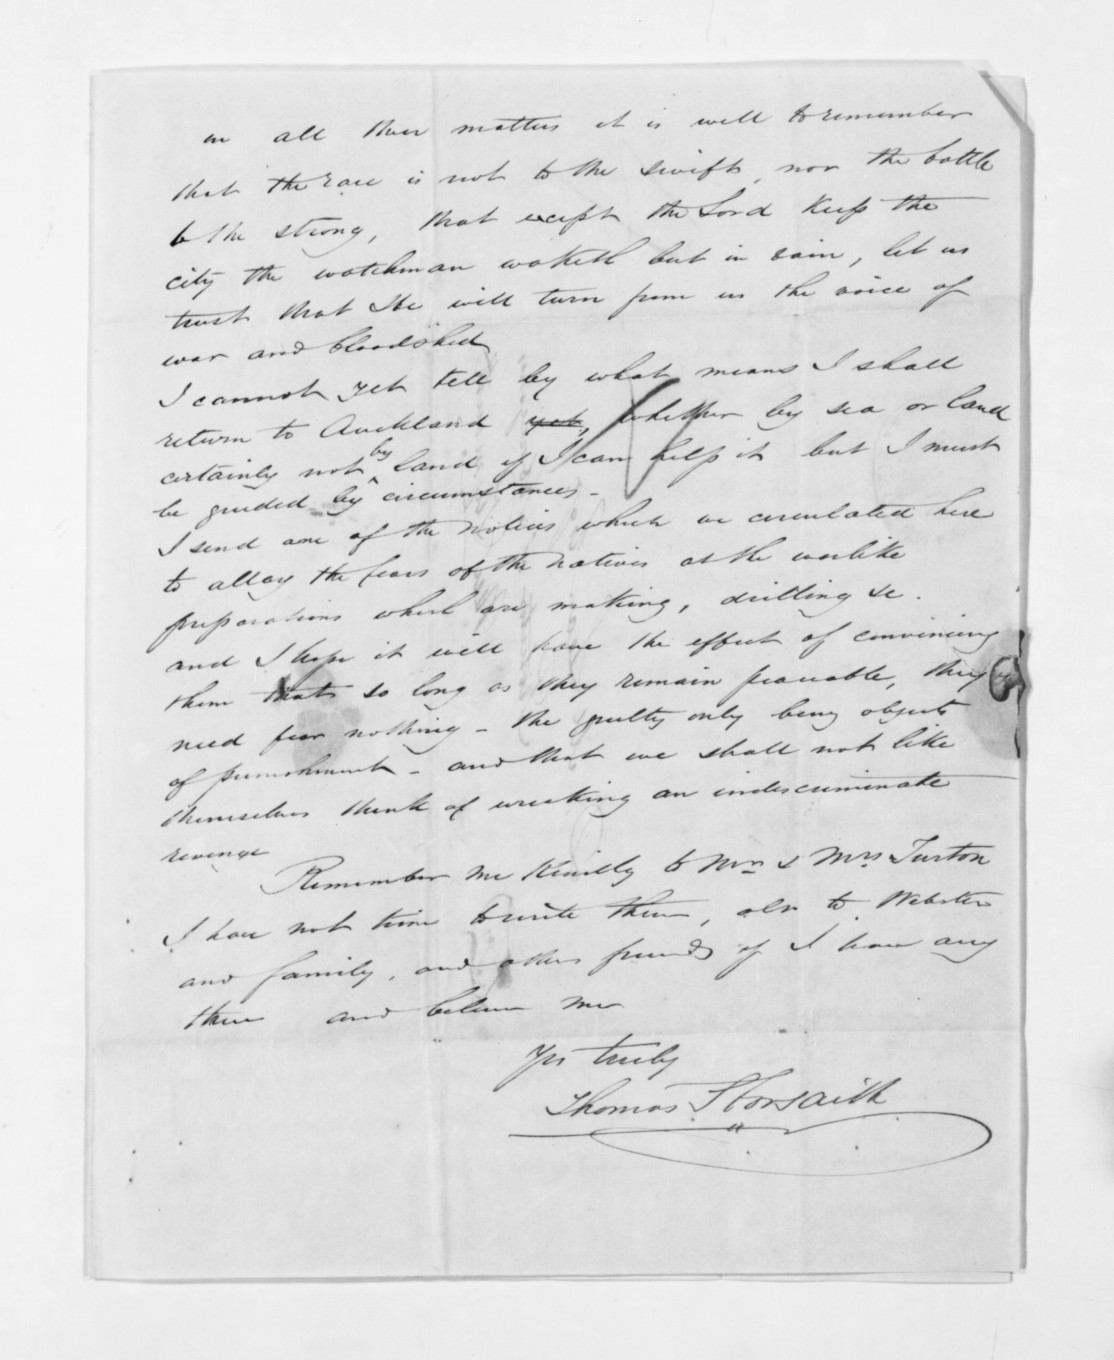 in all these matters it is well to remember
that the race is not to the swift, nor the battle
to the strong, that except the Lord keep the
city the watchman waketh but in vain, let us
trust that He will turn from us the voice of
war and bloodshed
I cannot yet tell by what means I shall
return to Auckland yet, whether by sea or land
certainly not by land if I can help it but I must
be guided by circumstances -
I send one of the notices which we circulated here
to allay the fears of the natives at the warlike
preparations which are making, drilling &c.
and I hope it will have the effect of convincing
them that so long as they remain peaceable, they
need fear nothing - the guilty only being objects
of punishment - and that we shall not like
themselves think of wreaking an indiscriminate
revenge
Remember me kindly to Mr. & Mrs Turton
I have not time to write them, also to Webster
and family, and other friends if I have any
there and believe me
Yrs truly
Thomas S Forsaith